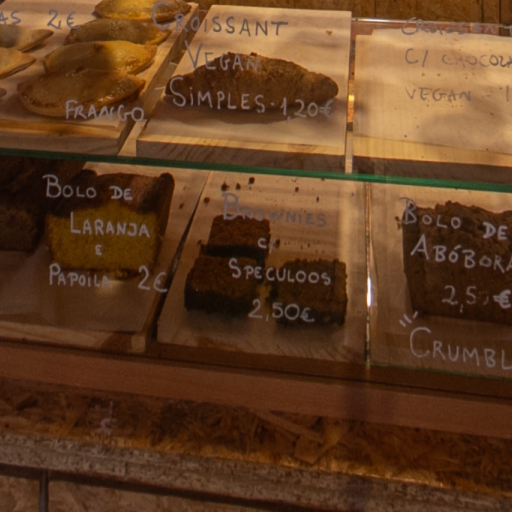 AS 2€
FRANGO
CROISSANT
VEGAN
SIMPLES · 1,20€
C/ CHOCOLA
VEGAN - 1
BOLO DE
LARANJA
E
PAPOILA 2€
BROWNIES
C/
SPECULOOS
2,50€
BOLO DE
ABÓBORA
2,5 €
CRUMBL